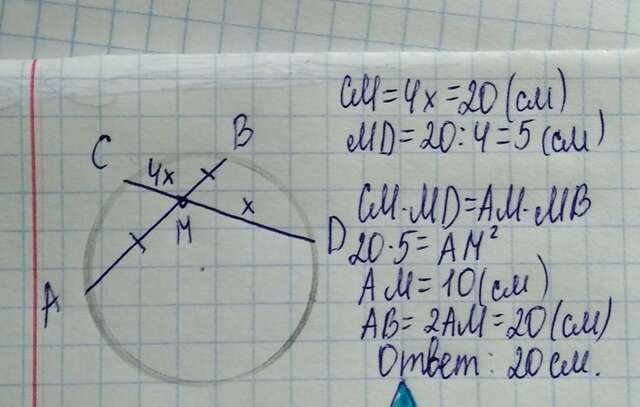 CM = 4x = 20 (см)
MD = 20 : 4 = 5 (см)
CM · MD = AM · MB
20 · 5 = AM²
AM = 10 (см)
AB = 2AM = 20 (см)
Ответ: 20 см.
B
C
4x
x
M
D
A